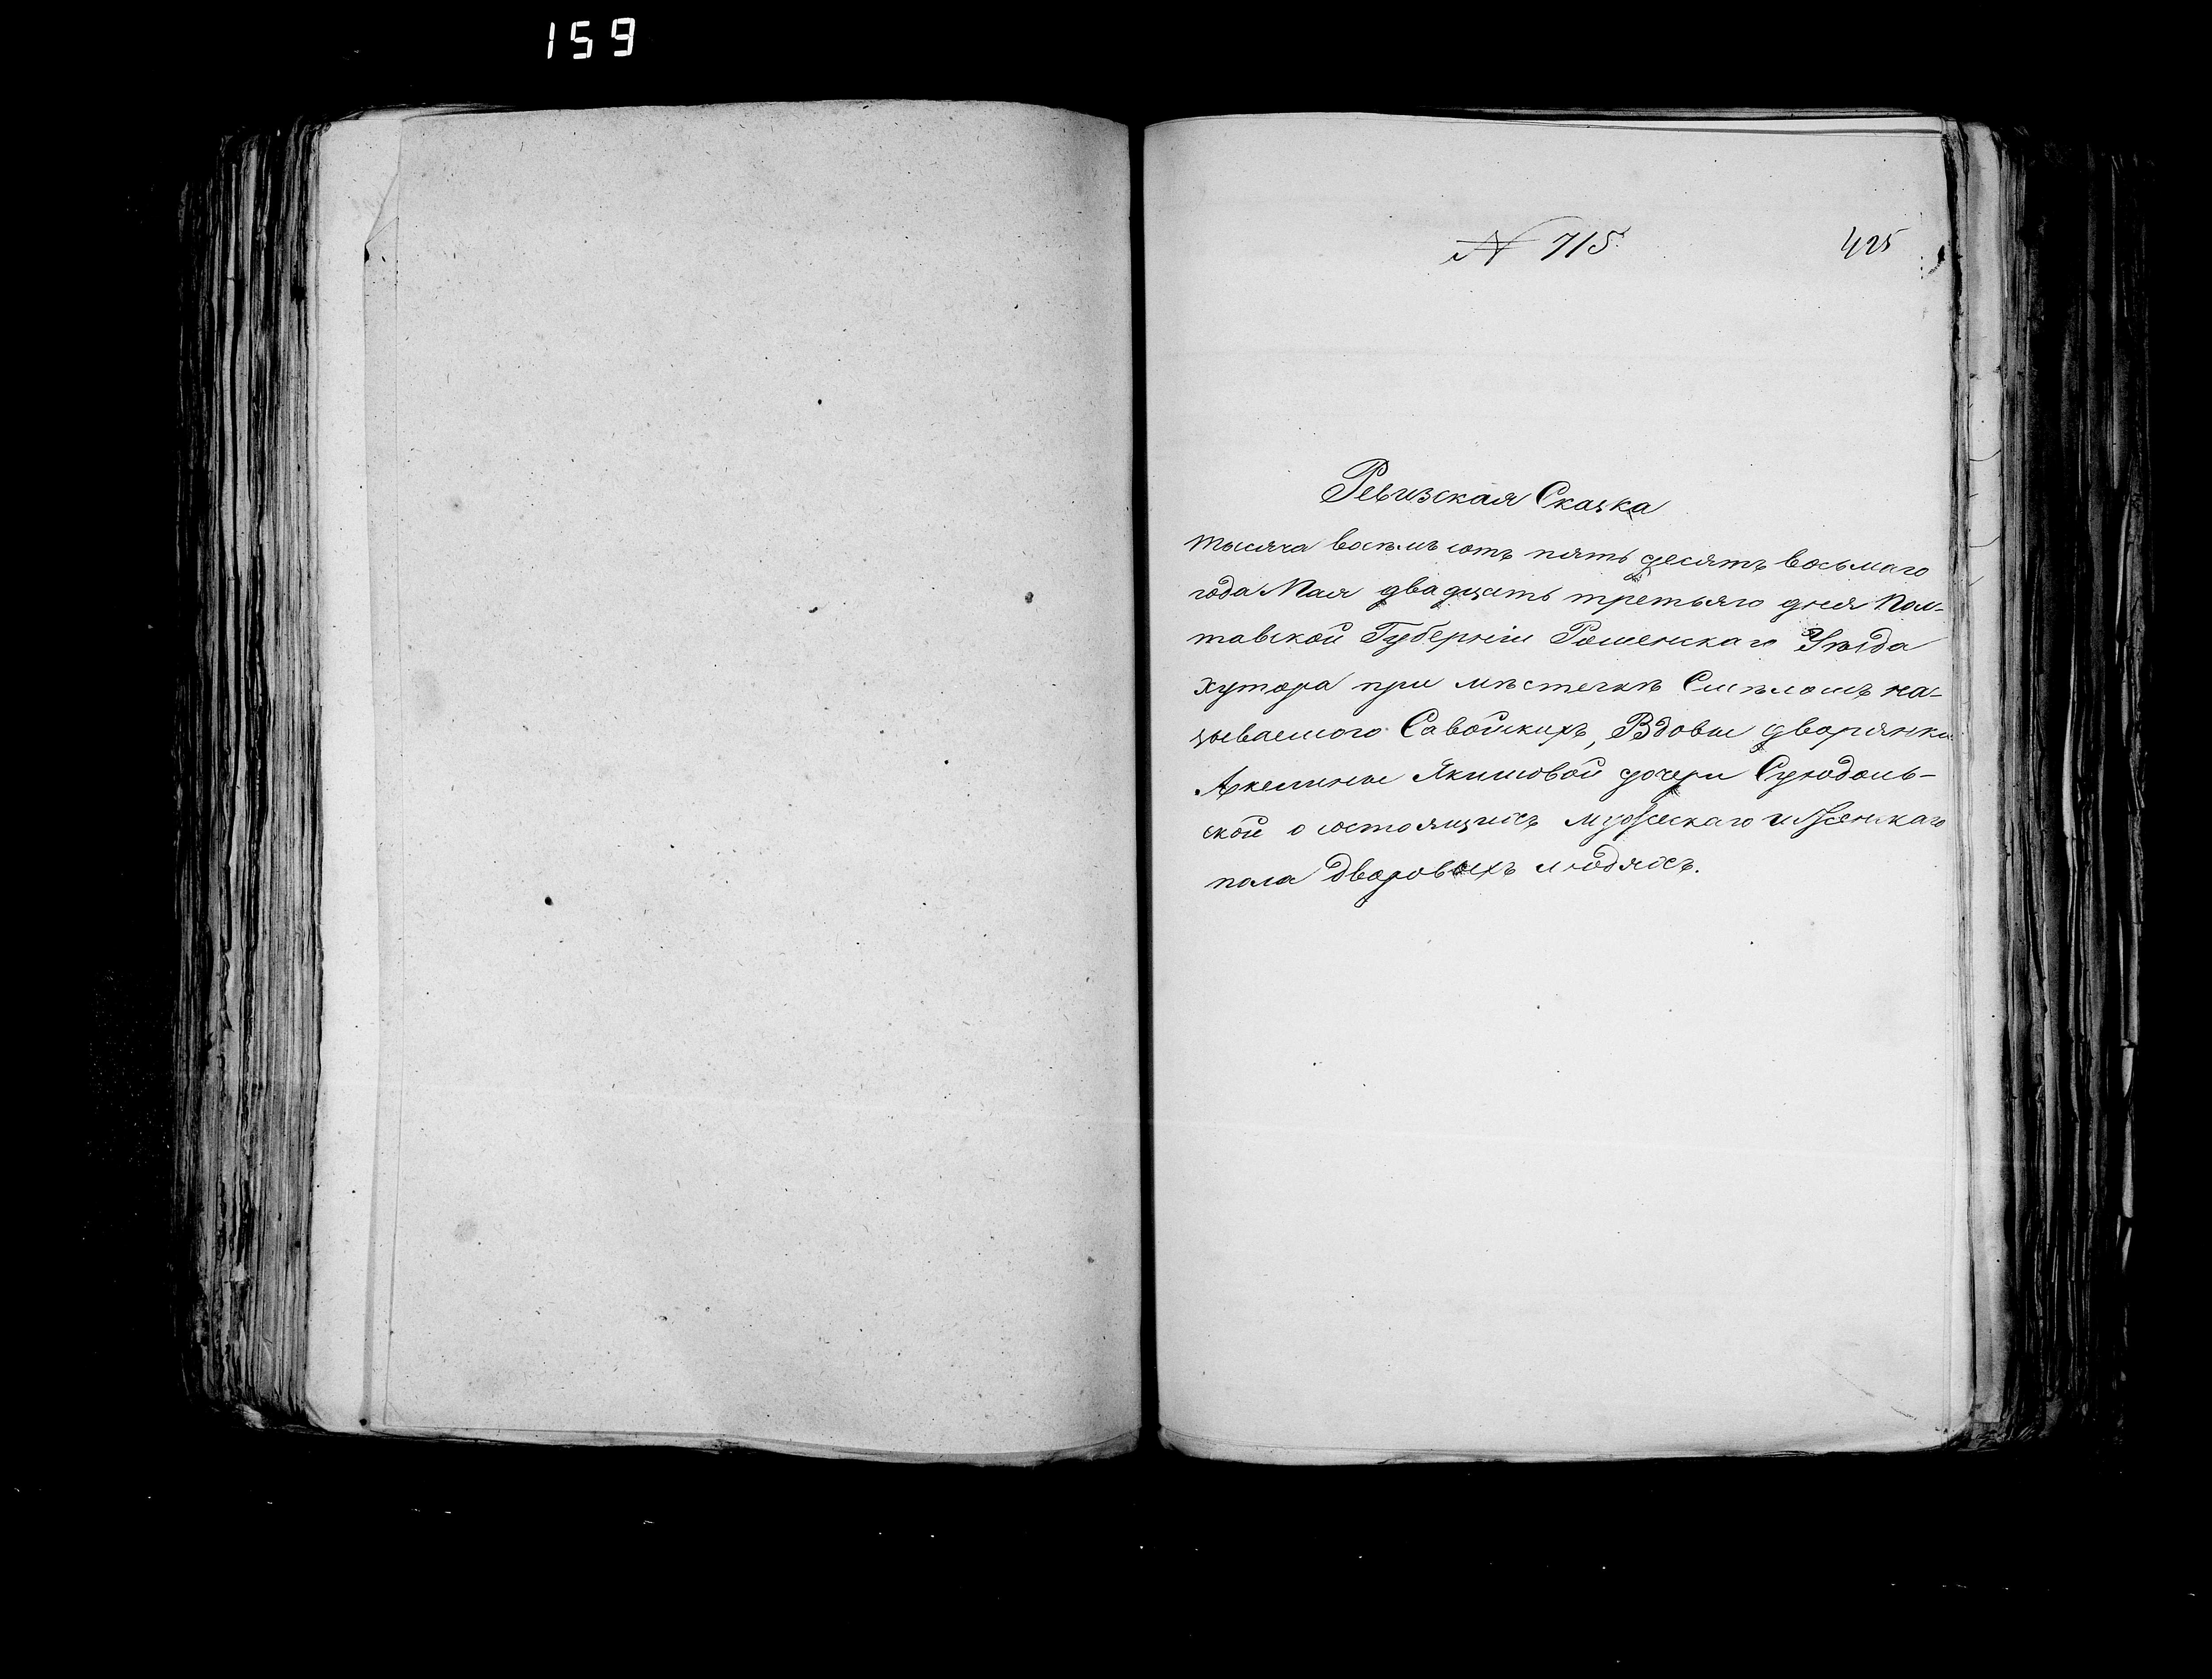 159
№ 715.
425
Ревизская Сказка
тысяча восемь сотъ пять десятъ восьмаго
года Мая двадцать третьяго дня Пол-
тавской Губерніи Роменскаго Уѣзда
хутора при мѣстечкѣ Смѣломъ на-
зываемого Савойскихъ, Вдовы дворянки
Акелины Якимовой дочери
ской о состоящихъ мужескаго и женскаго
пола дворовыхъ людяхъ.